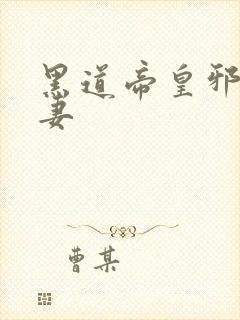 黑道帝皇邪
妻
曹某